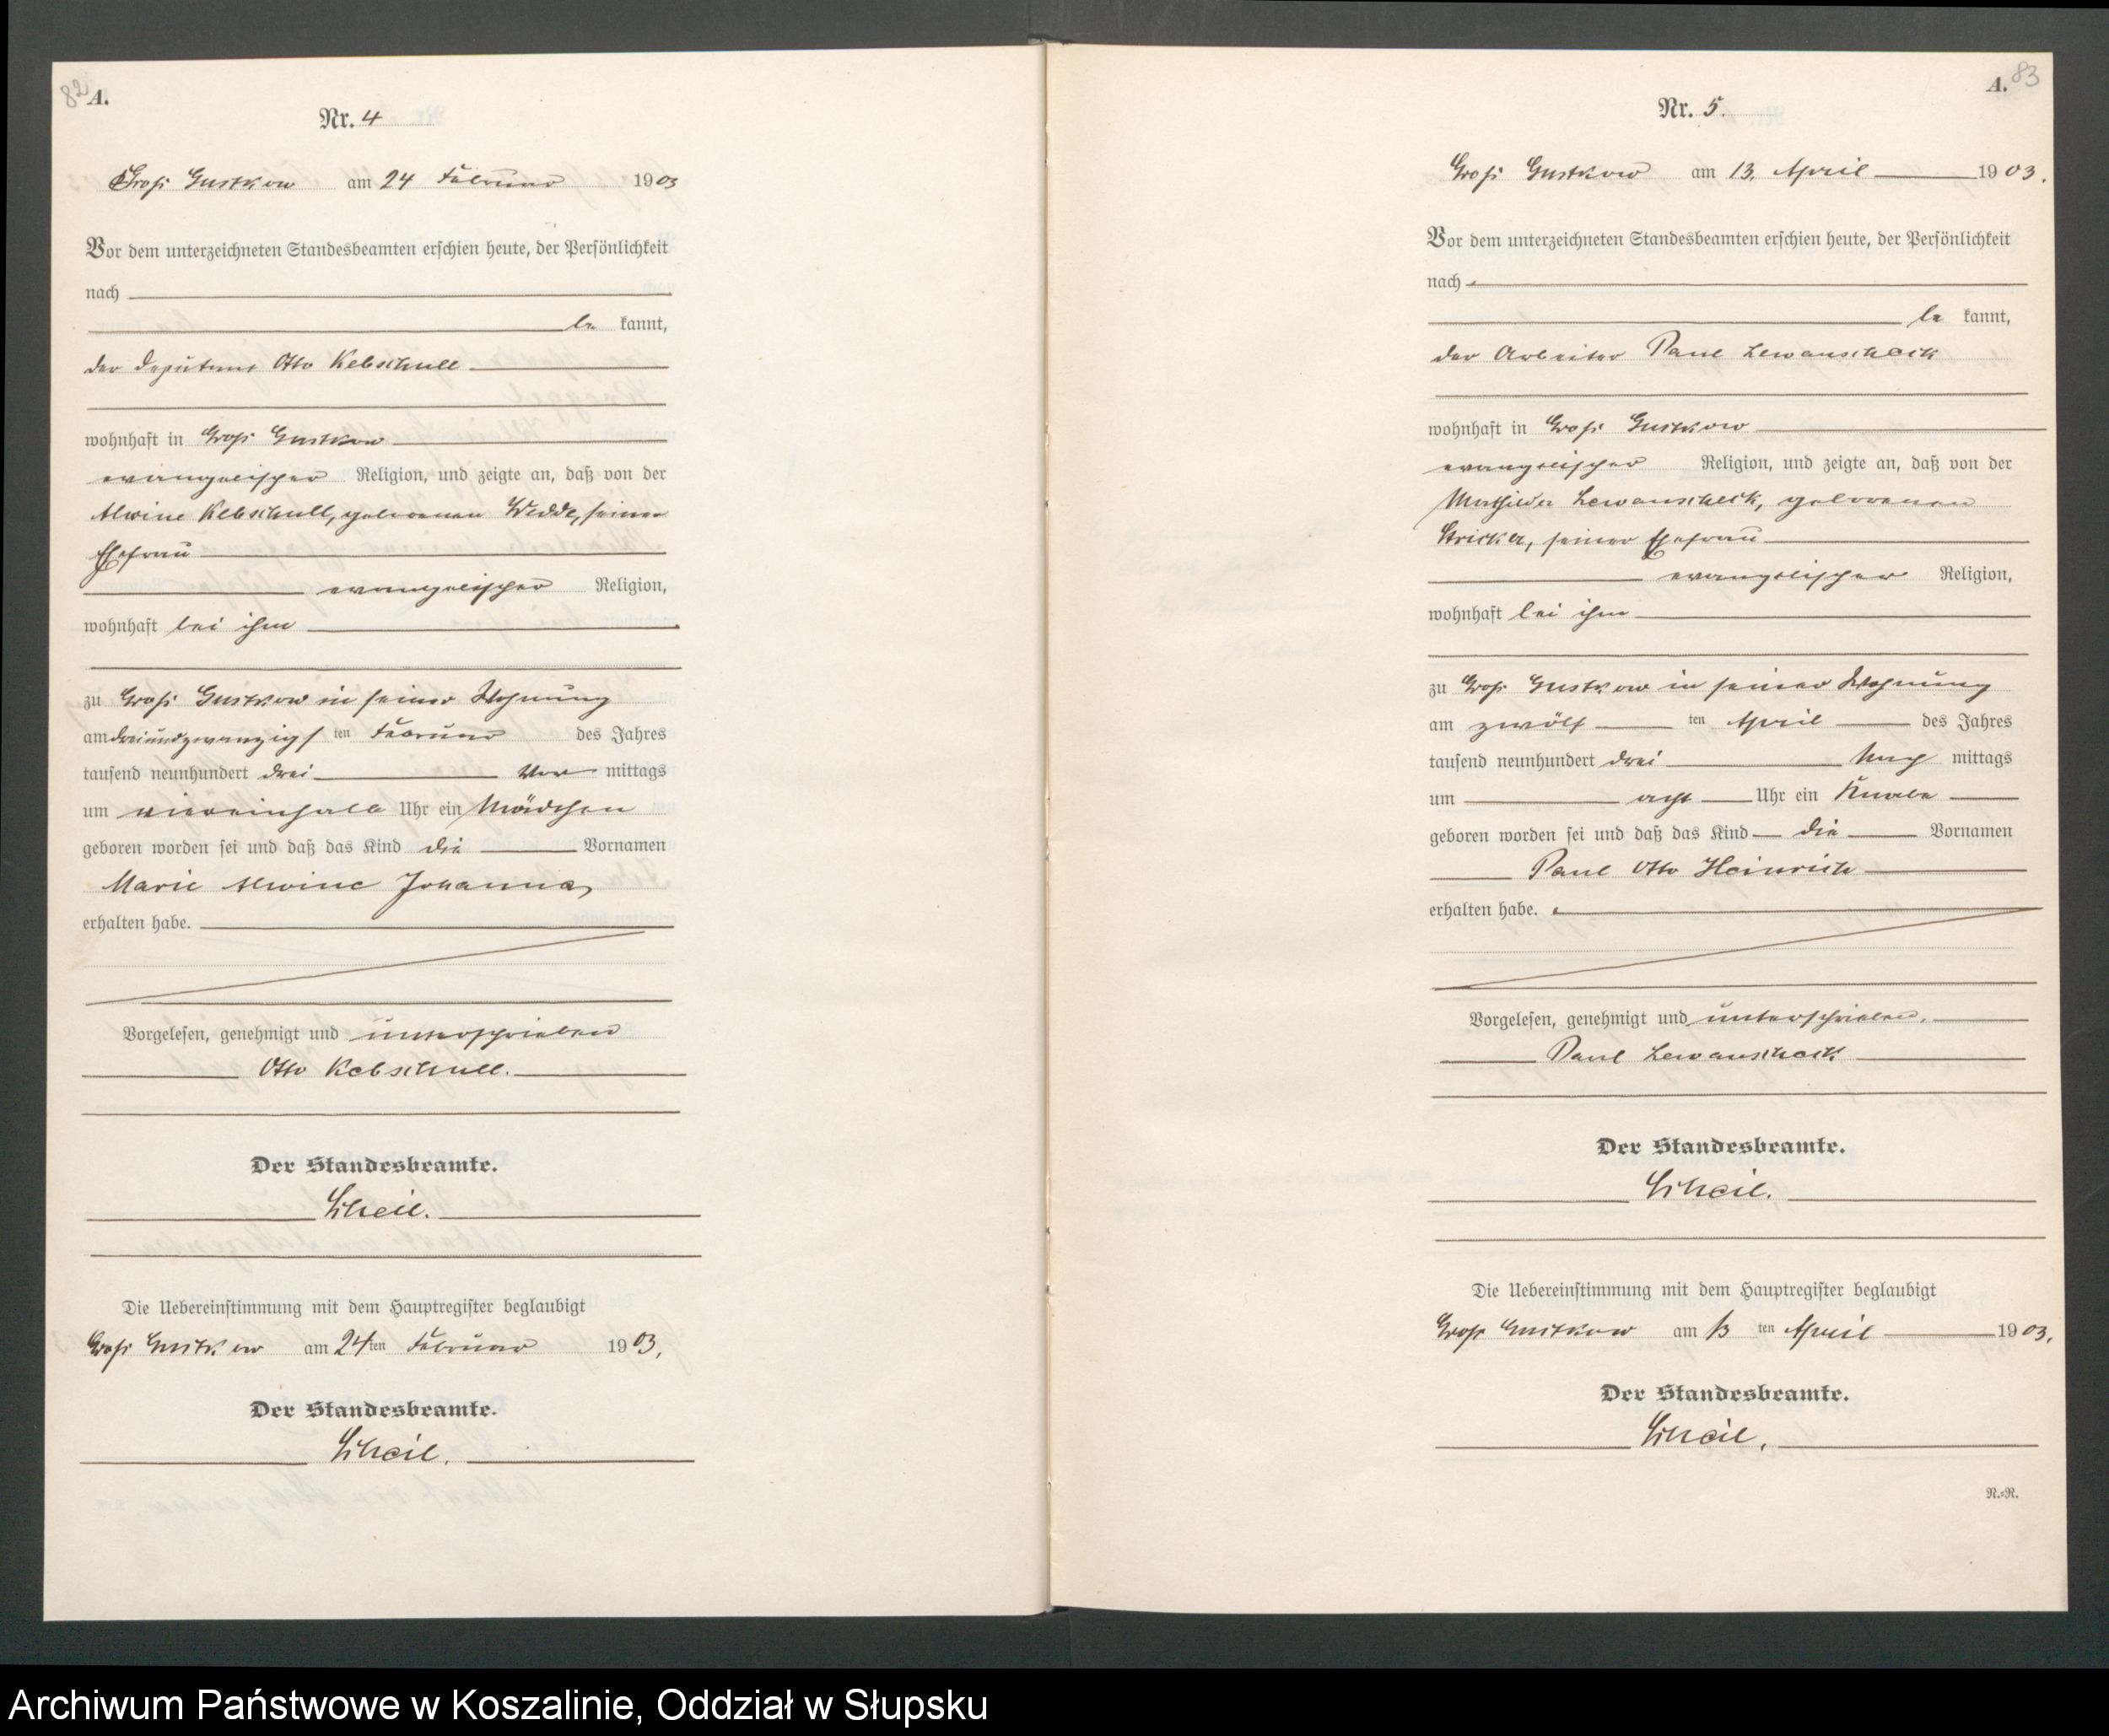 82 A.
Nr. 4
Groß Gustkow am 24 Februar 1903
Vor dem unterzeichneten Standesbeamten erschien heute, der Persönlichkeit
nach
be kannt,
der Deputant Otto Kebschull
wohnhaft in Groß Gustkow
evangelischer Religion, und zeigte an, daß von der
Alwine Kebschull, geborenen Wedde, seiner
Ehefrau
evangelischer Religion,
wohnhaft bei ihm
zu Groß Gustkow in seiner Wohnung
am dreiundzwanzigsten Februar des Jahres
tausend neunhundert drei Vor mittags
um viereinhalb Uhr ein Mädchen
geboren worden sei und daß das Kind die Vornamen
Marie Alwine Johanna,
erhalten habe.
Vorgelesen, genehmigt und unterschrieben
Otto Kebschull.
Der Standesbeamte.
Scheil.
Die Uebereinstimmung mit dem Hauptregister beglaubigt
Groß Gustkow am 24ten Februar 1903.
Der Standesbeamte.
Scheil.
A. 83
Nr. 5.
Groß Gustkow am 13. April 1903.
Vor dem unterzeichneten Standesbeamten erschien heute, der Persönlichkeit
nach
be kannt,
der Arbeiter Paul Lewanscheck
wohnhaft in Groß Gustkow
evangelischer Religion, und zeigte an, daß von der
Lewanscheck, geborenen
Stricker, seiner Ehefrau
evangelischer Religion,
wohnhaft bei ihm
zu Groß Gustkow in seiner Wohnung
am zwölf ten April des Jahres
tausend neunhundert drei Nach mittags
um acht Uhr ein Knabe
geboren worden sei und daß das Kind die Vornamen
Paul Otto Heinrich
erhalten habe.
Vorgelesen, genehmigt und unterschrieben.
Paul Lewanscheck
Der Standesbeamte.
Scheil.
Die Uebereinstimmung mit dem Hauptregister beglaubigt
Groß Gustkow am 13 ten April 1903.
Der Standesbeamte.
Scheil.
N.=R.
Archiwum Państwowe w Koszalinie, Oddział w Słupsku